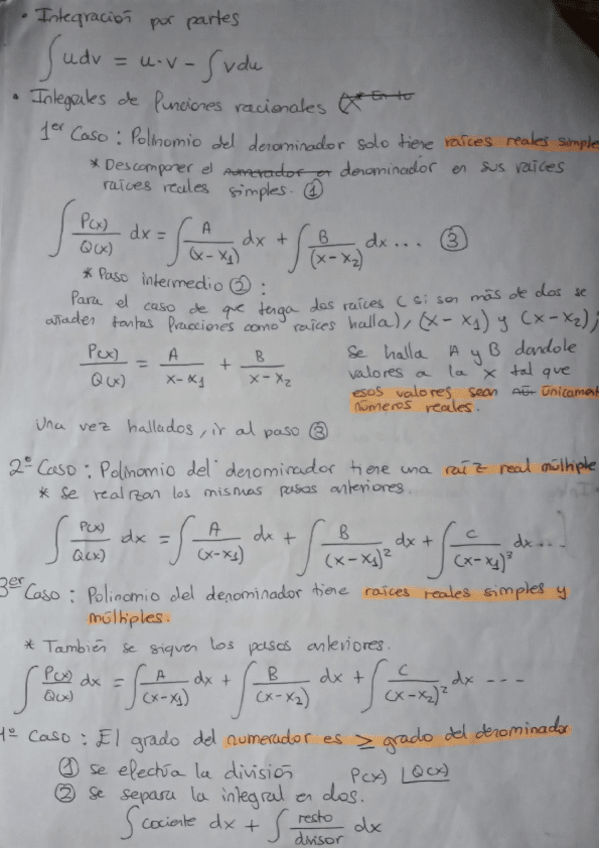 • Integración por partes
∫udv = u·v - ∫vdu
• Integrales de funciones racionales
1er Caso: Polinomio del denominador solo tiene raíces reales simple
* Descomponer el numerador en denominador en sus raíces
raíces reales simples. ①
∫ P(x)/Q(x) dx = ∫ A/(x-x₁) dx + ∫ B/(x-x₂) dx... ③
* Paso intermedio ②:
Para el caso de que tenga dos raíces (si son más de dos se
añaden tantas fracciones como raíces halla), (x-x₁) y (x-x₂);
P(x)/Q(x) = A/x-x₁ + B/x-x₂
Se halla A y B dandole
valores a la x tal que
esos valores sean únicament
números reales.
Una vez hallados, ir al paso ③
2º Caso: Polinomio del denominador tiene una raíz real múltiple
* Se realizan los mismos pasos anteriores.
∫ P(x)/Q(x) dx = ∫ A/(x-x₁) dx + ∫ B/(x-x₁)² dx + ∫ C/(x-x₁)³ dx...
3er Caso: Polinomio del denominador tiene raíces reales simples y
múltiples.
* También se siguen los pasos anteriores.
∫ P(x)/Q(x) dx = ∫ A/(x-x₁) dx + ∫ B/(x-x₂) dx + ∫ C/(x-x₂)² dx ---
1º Caso: El grado del numerador es ≥ grado del denominador
① se efectúa la división P(x) |Q(x)
② se separa la integral en dos.
∫ cociente dx + ∫ resto/divisor dx